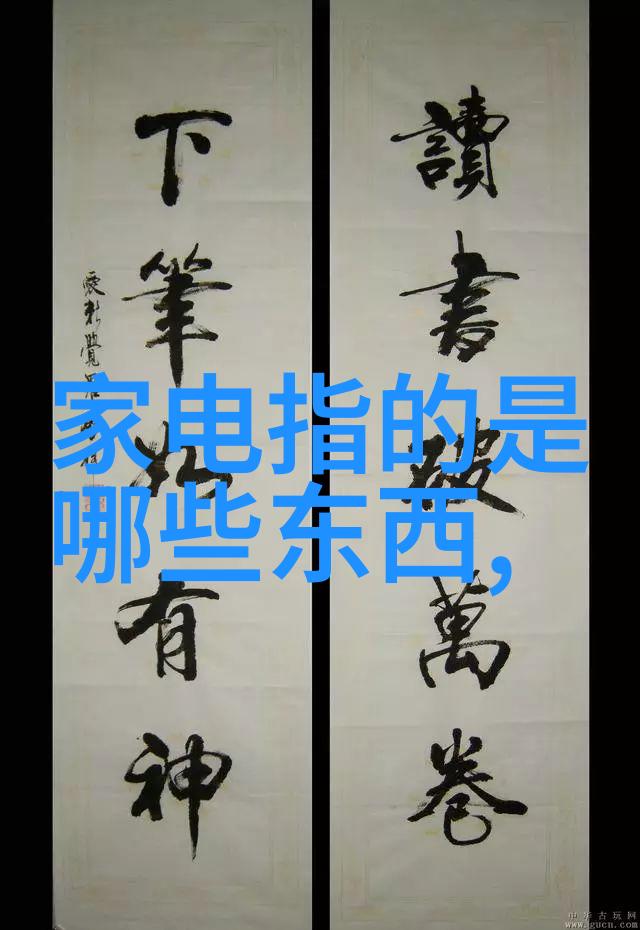 讀書破萬卷
下筆如有神
家电指的是
哪些东西,
中华古玩网
www.gucn.com